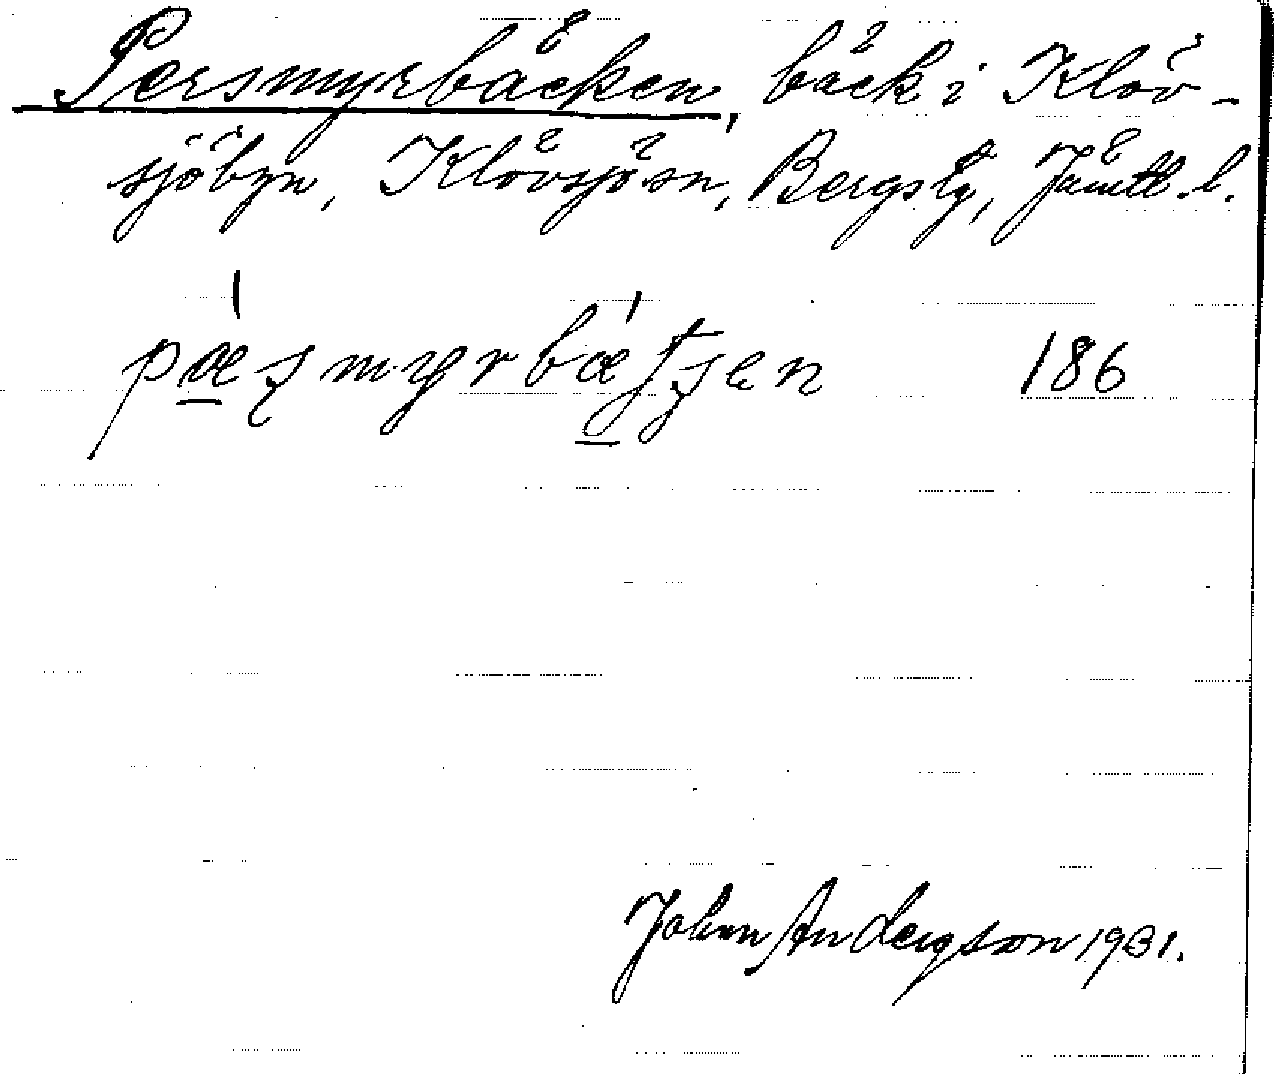 Persmyrbäcken, bäck i Klöv-
sjöbyn, Klövsjö sn, Bergs tg, Jämtl l.
pæʂmyrbætʂen 186
Johan Anderson 1931.